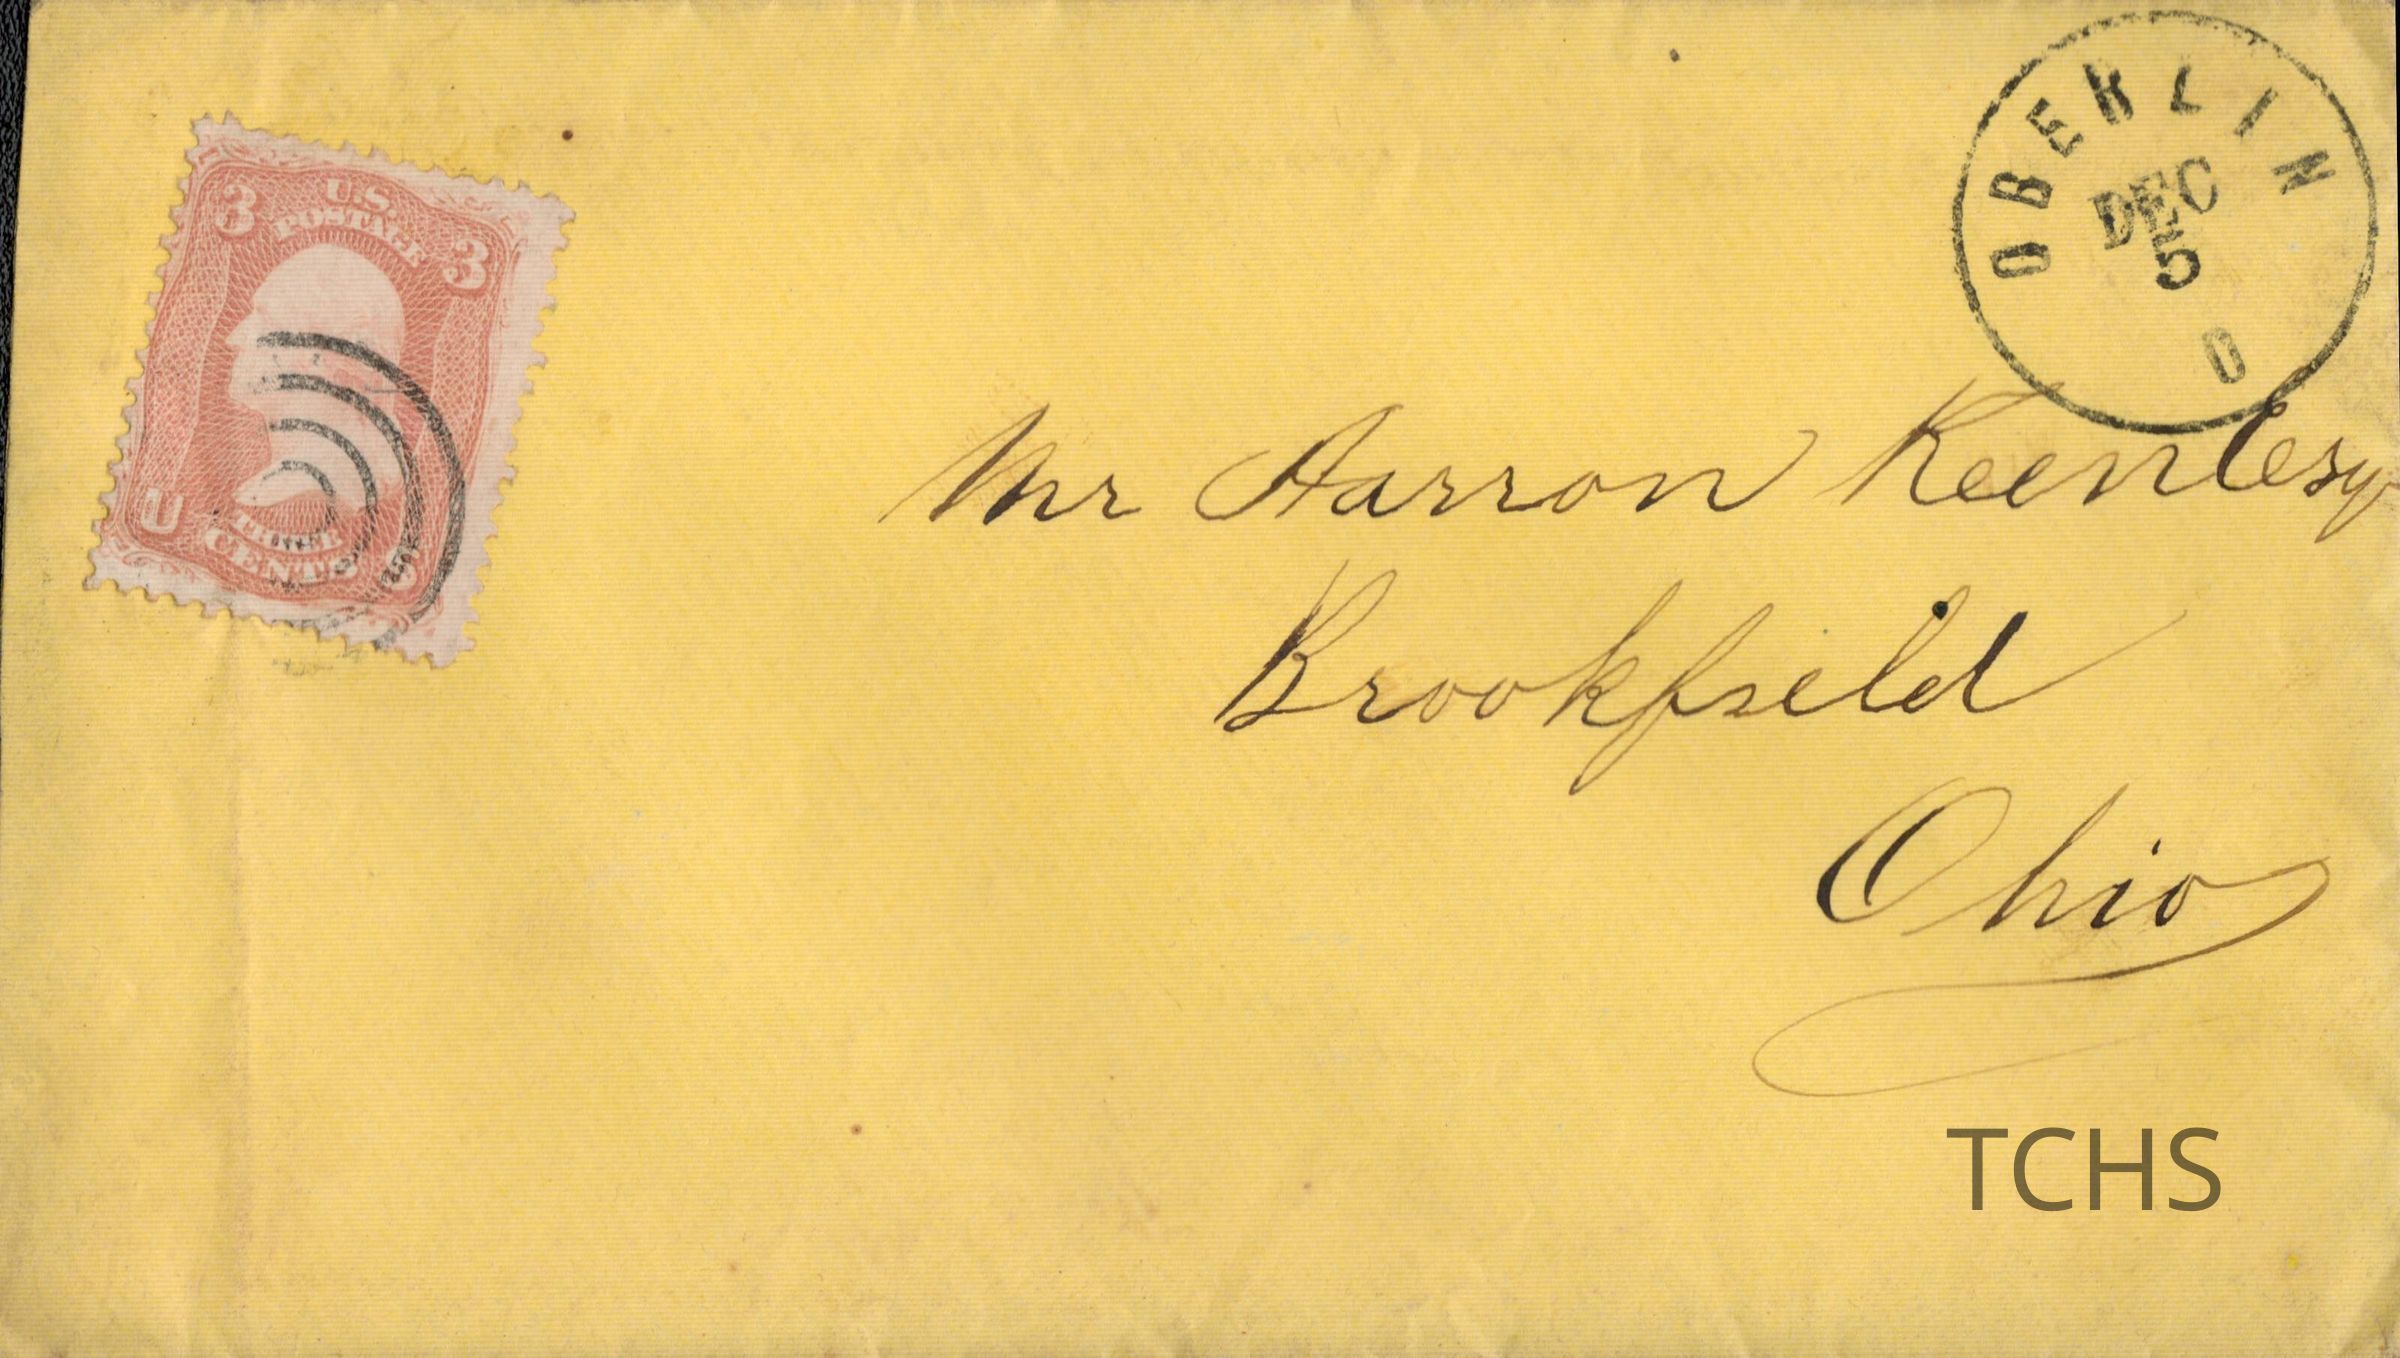 OBERLIN
DEC
5
O
3 U.S. 3
POSTAGE
U THREE S
CENTS
Mr Aarron Keenl Esq
Brookfield
Ohio
TCHS